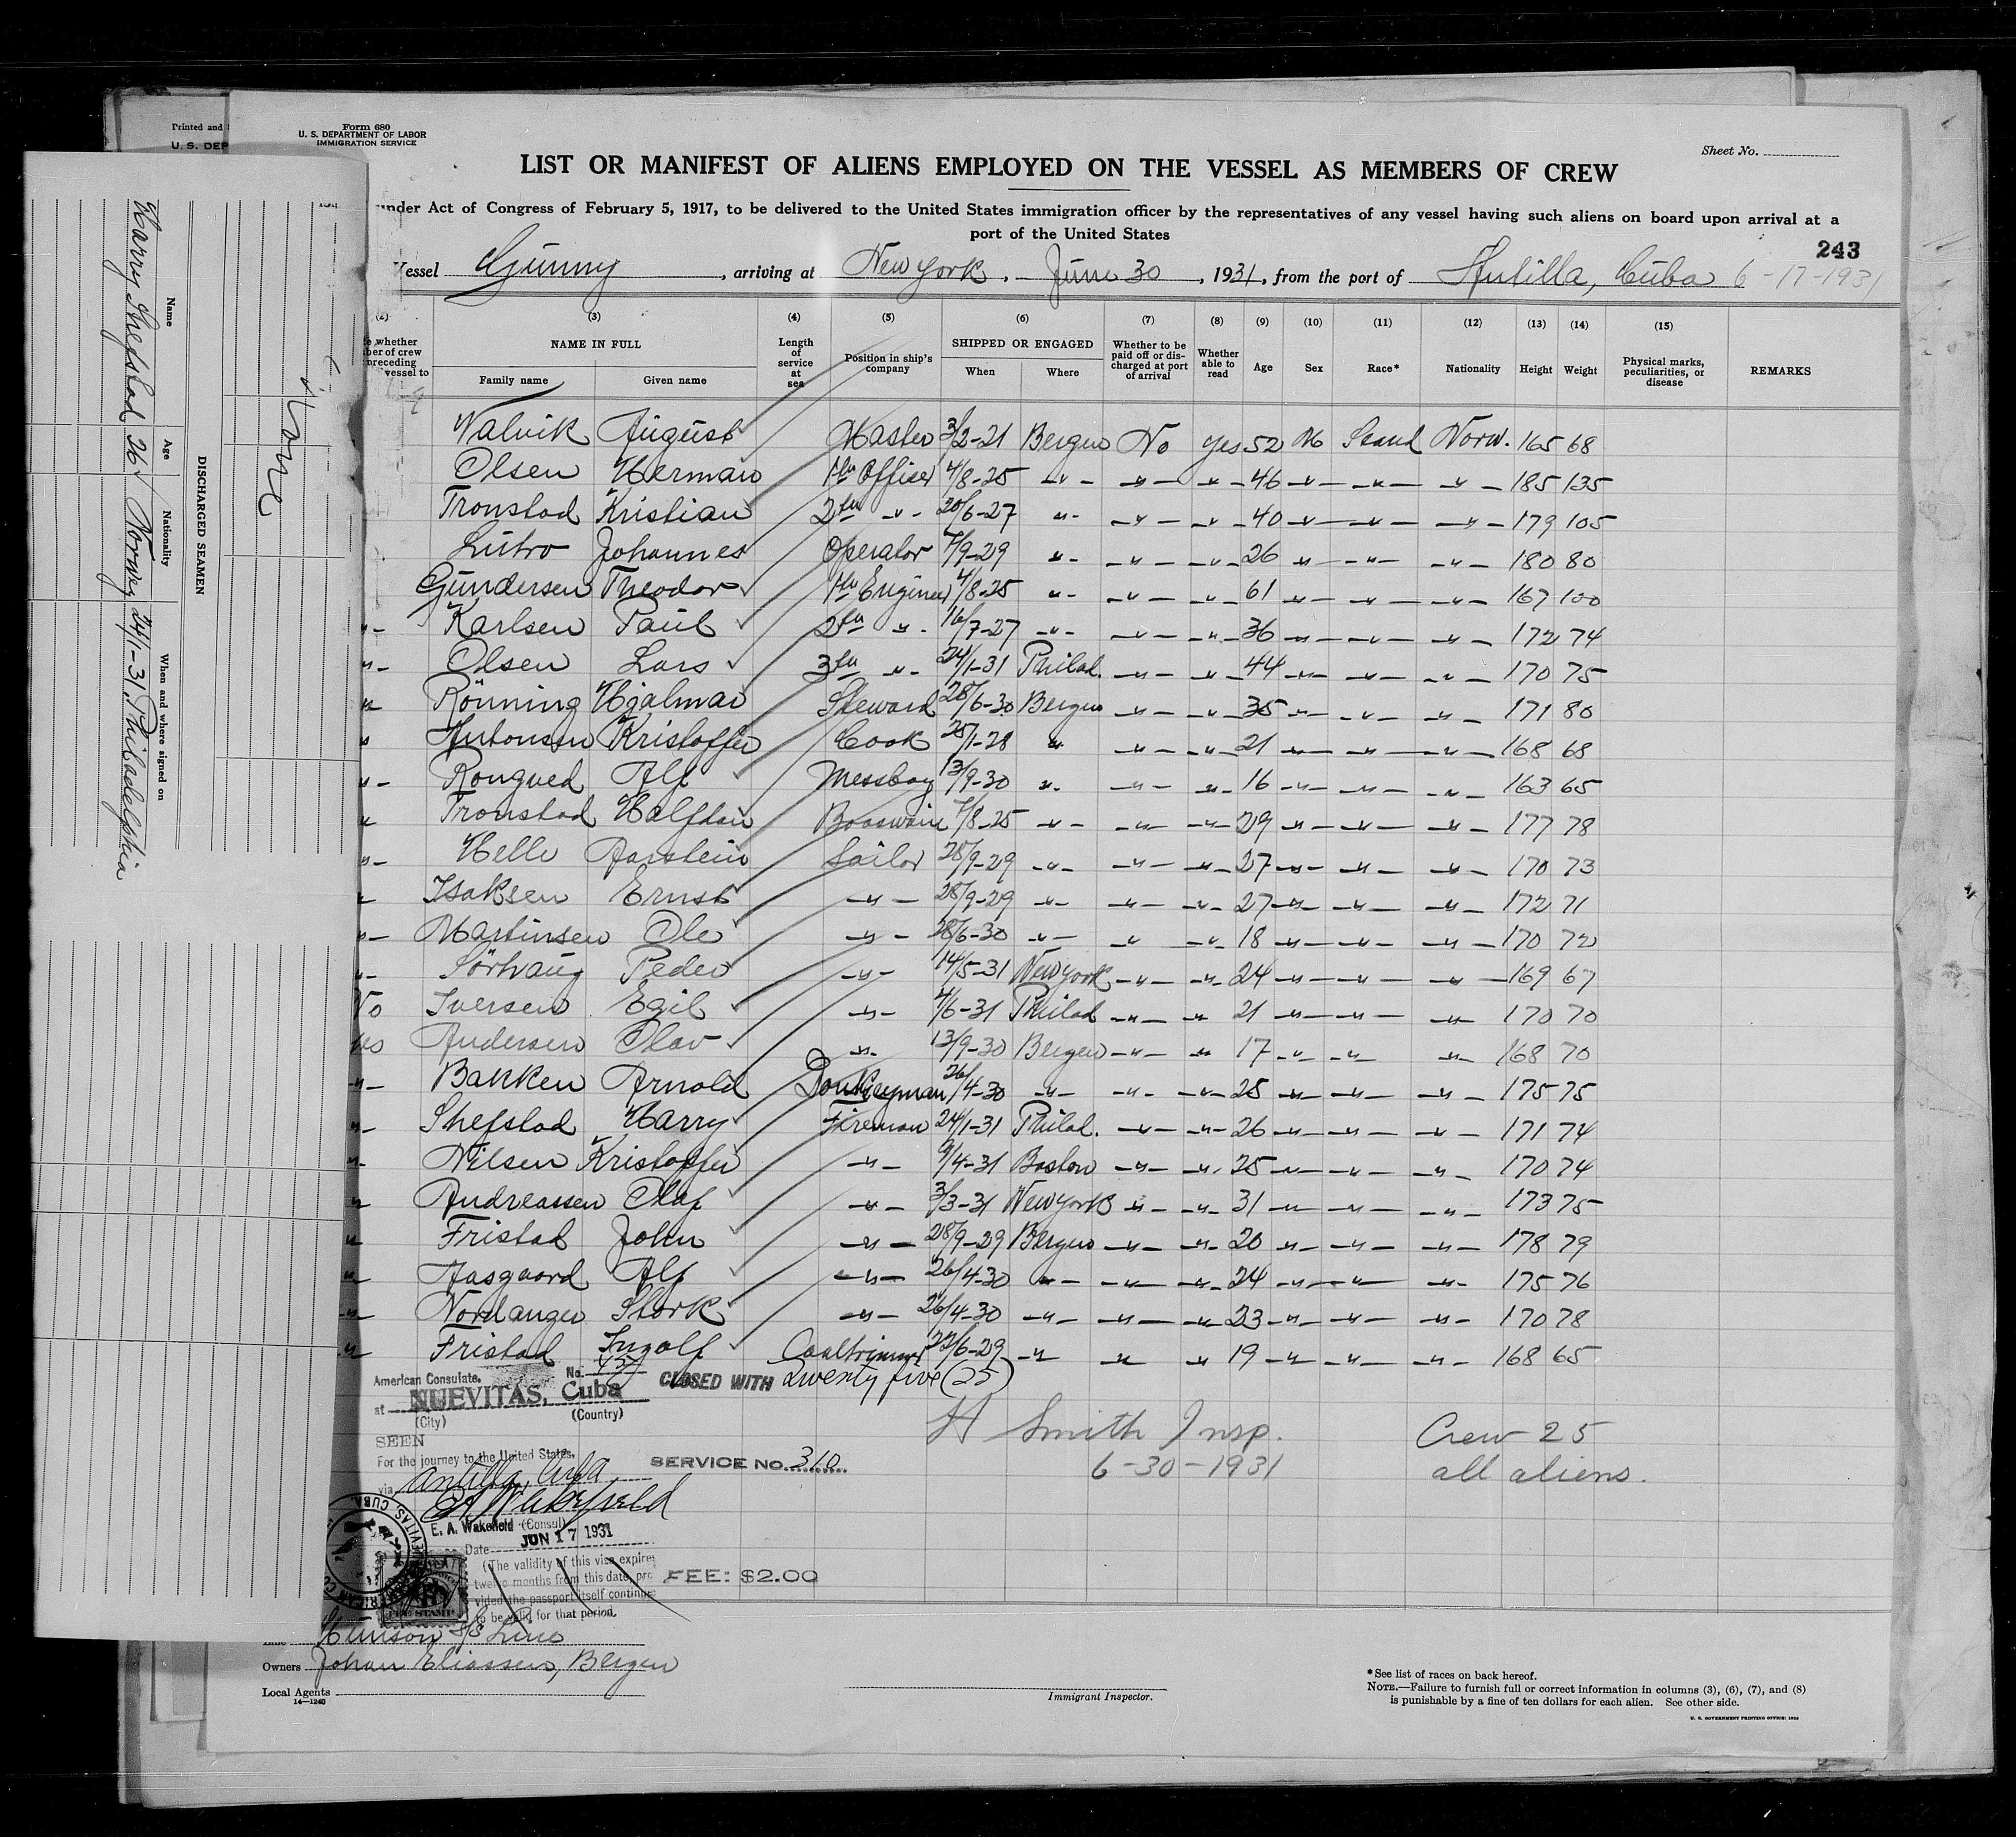 Printed and
U. S. DEP
Form 680
U. S. DEPARTMENT OF LABOR
IMMIGRATION SERVICE
Sheet No.
LIST OR MANIFEST OF ALIENS EMPLOYED ON THE VESSEL AS MEMBERS OF CREW
under Act of Congress of February 5, 1917, to be delivered to the United States immigration officer by the representatives of any vessel having such aliens on board upon arrival at a
port of the United States
243
Vessel Gunny, arriving at New York, June 30, 1931, from the port of Antilla, Cuba 6-17-1931
(2) (3) (4) (5) (6) (7) (8) (9) (10) (11) (12) (13) (14) (15)
whether
ber of crew
preceding
vessel to
NAME IN FULL
Family name Given name
Length of service at sea
Position in ship's company
SHIPPED OR ENGAGED
When Where
Whether to be paid off or discharged at port of arrival
Whether able to read
Age Sex Race* Nationality Height Weight
Physical marks, peculiarities, or disease
REMARKS
Walvik August Master 3/2-21 Bergen No yes 52 M Scand Norw. 165 68
Olsen Herman 1st Officer 4/8-25 -"- -"- -"- 46 -"- -"- -"- 185 135
Tronstad Kristian 2en -"- 20/6-27 -"- -"- -"- 40 -"- -"- -"- 179 105
Lutro Johannes Operator 7/9-29 -"- -"- -"- 26 -"- -"- -"- 180 80
Gundersen Theodor 1st Engineer 4/8-25 -"- -"- -"- 61 -"- -"- -"- 167 100
-"- Karlsen Paul 2en -"- 16/7-27 -"- -"- -"- 36 -"- -"- -"- 172 74
-"- Olsen Lars 3en -"- 24/1-31 Philad. -"- -"- 44 -"- -"- -"- 170 75
-"- Rönning Hjalmar Steward 28/6-30 Bergen -"- -"- 35 -"- -"- -"- 171 80
-"- Antonsen Kristoffer Cook 28/1-28 -"- -"- -"- 21 -"- -"- -"- 168 68
-"- Rongved Alf Messboy 13/9-30 -"- -"- -"- 16 -"- -"- -"- 163 65
-"- Tronstad Halfdan Booswain 7/8-25 -"- -"- -"- 29 -"- -"- -"- 177 78
-"- Helle Aarstein Sailor 28/9-29 -"- -"- -"- 27 -"- -"- -"- 170 73
-"- Isaksen Ernst -"- 28/9-29 -"- -"- -"- 27 -"- -"- -"- 172 71
-"- Martinsen Ole -"- 28/6-30 -"- -"- -"- 18 -"- -"- -"- 170 72
-"- Sörhaug Peder -"- 14/5-31 New York -"- -"- 24 -"- -"- -"- 169 67
No Iversen Egil -"- 4/6-31 Philad -"- -"- 21 -"- -"- -"- 170 70
yes Andersen Olav -"- 13/9-30 Bergen -"- -"- 17 -"- -"- -"- 168 70
-"- Bakken Arnold Donkeyman 26/4-30 -"- -"- -"- 25 -"- -"- -"- 175 75
-"- Shefstad Harry Fireman 24/1-31 Philad. -"- -"- 26 -"- -"- -"- 171 74
-"- Nilsen Kristoffer -"- 9/4-31 Boston -"- -"- 25 -"- -"- -"- 170 74
-"- Andreassen Olaf -"- 3/3-31 New York -"- -"- 31 -"- -"- -"- 173 75
-"- Fristad John -"- 28/9-29 Bergen -"- -"- 20 -"- -"- -"- 178 79
-"- Aasgaard Alf -"- 26/4-30 -"- -"- -"- 24 -"- -"- -"- 175 76
-"- Nordanger Stork -"- 26/4-30 -"- -"- -"- 23 -"- -"- -"- 170 78
-"- Fristad Ingolf Coaltrimmer 22/6-29 -"- -"- -"- 19 -"- -"- -"- 168 65
American Consulate, No.
CLOSED WITH Twenty five (25)
at NUEVITAS, Cuba
(City) (Country)
SEEN
For the journey to the United States.
via Antilla, Cuba
SERVICE NO. 310
EA Wakefield
E. A. Wakefield (Consul)
Date JUN 17 1931
(The validity of this visa expires
twelve months from this date, pro
vided the passport itself continue
to be valid for that period.
FEE: $2.00
FEE STAMP
H Smith Insp.
6-30-1931
Crew 25
all aliens.
Munson S/S Line
Owners Johan Eliassen, Bergen
Local Agents
14-1240
Immigrant Inspector.
*See list of races on back hereof.
NOTE.—Failure to furnish full or correct information in columns (3), (6), (7), and (8)
is punishable by a fine of ten dollars for each alien. See other side.
U. S. GOVERNMENT PRINTING OFFICE
None
DISCHARGED SEAMEN
Name Age Nationality When and where signed on
Harry Shefstad 26 Norway 24/1-31 Philadelphia